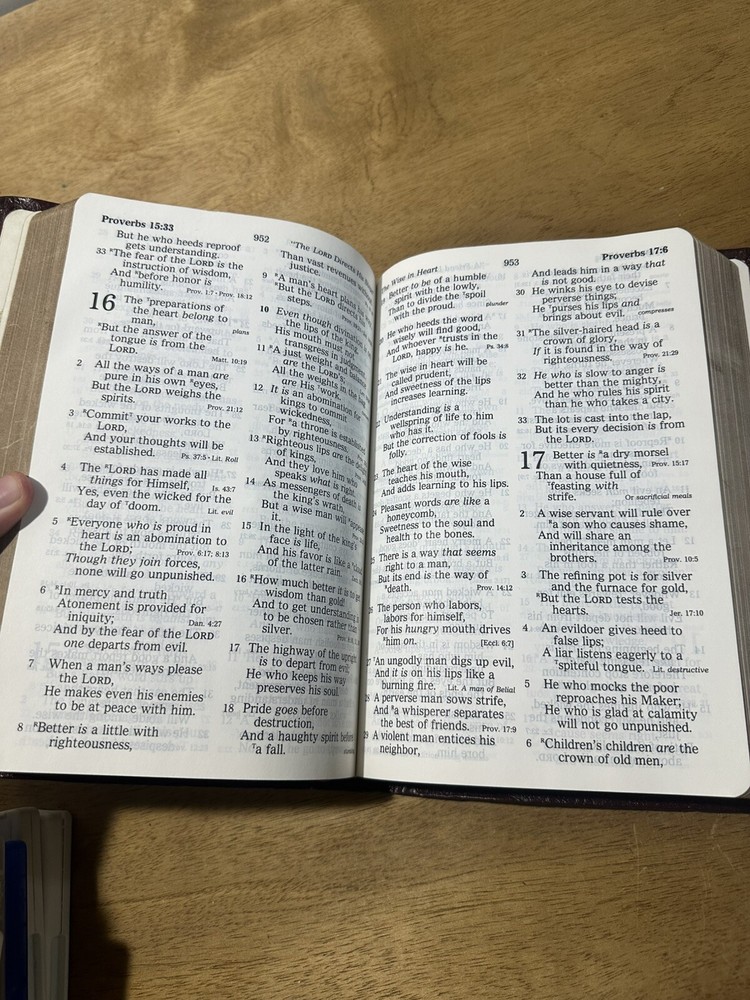 Proverbs 15:33
952
"The LORD Directs
But he who heeds reproof
gets understanding.
33 RThe fear of the LORD is the
instruction of wisdom,
And Rbefore honor is
humility. Prov. 1:7 · Prov. 18:12
16 The Tpreparations of
the heart belong to
man, plans
RBut the answer of the
tongue is from the
LORD. Matt. 10:19
2 All the ways of a man are
pure in his own Reyes,
But the LORD weighs the
spirits. Prov. 21:12
3 RCommitT your works to the
LORD,
And your thoughts will be
established. Ps. 37:5 · Lit. Roll
4 The RLORD has made all
things for Himself, Is. 43:7
Yes, even the wicked for the
day of Tdoom. Lit. evil
5 REveryone who is proud in
heart is an abomination to
the LORD; Prov. 6:17; 8:13
Though they join forces,
none will go unpunished.
6 RIn mercy and truth
Atonement is provided for
iniquity; Dan. 4:27
And by the fear of the LORD
one departs from evil.
7 When a man's ways please
the LORD,
He makes even his enemies
to be at peace with him.
8 RBetter is a little with
righteousness,
Than vast revenues
justice.
9 RA man's heart plans
RBut the LORD directs
steps.
10 Even though divination
the lips of the king
His mouth must not
transgress in judgment.
11 RA just weight and balance
are the LORD's;
All the weights in the
are His work.
12 It is an abomination for
kings to commit
wickedness,
For Ra throne is established
by righteousness.
13 RRighteous lips are the
of kings,
And they love him who
speaks what is right.
14 As messengers of death is
the king's wrath,
But a wise man will
it.
15 In the light of the king's
face is life,
And his favor is like a
of the latter rain.
16 RHow much better it is to get
wisdom than gold!
And to get understanding is
to be chosen rather than
silver.
17 The highway of the upright
is to depart from evil;
He who keeps his way
preserves his soul.
18 Pride goes before
destruction,
And a haughty spirit before
Ta fall.
The Wise in Heart
953
Proverbs 17:6
Better to be of a humble
spirit with the lowly,
Than to divide the Tspoil
with the proud. plunder
He who heeds the word
wisely will find good,
And whoever Rtrusts in the
LORD, happy is he. Ps. 34:8
The wise in heart will be
called prudent,
And sweetness of the lips
increases learning.
Understanding is a
wellspring of life to him
who has it.
But the correction of fools is
folly.
The heart of the wise
teaches his mouth,
And adds learning to his lips.
Pleasant words are like a
honeycomb,
Sweetness to the soul and
health to the bones.
There is a way that seems
right to a man,
But its end is the way of
Rdeath. Prov. 14:12
The person who labors,
labors for himself,
For his hungry mouth drives
Rhim on. [Eccl. 6:7]
27 TAn ungodly man digs up evil,
And it is on his lips like a
burning fire. Lit. A man of Belial
28 A perverse man sows strife,
And Ra whisperer separates
the best of friends. Prov. 17:9
29 A violent man entices his
neighbor,
And leads him in a way that
is not good.
30 He winks his eye to devise
perverse things;
He Tpurses his lips and
brings about evil. compresses
31 RThe silver-haired head is a
crown of glory,
If it is found in the way of
righteousness. Prov. 21:29
32 He who is slow to anger is
better than the mighty,
And he who rules his spirit
than he who takes a city.
33 The lot is cast into the lap,
But its every decision is from
the LORD.
17 Better is Ra dry morsel
with quietness, Prov. 15:17
Than a house full of
Tfeasting with
strife. Or sacrificial meals
2 A wise servant will rule over
Ra son who causes shame,
And will share an
inheritance among the
brothers. Prov. 10:5
3 The refining pot is for silver
and the furnace for gold,
RBut the LORD tests the
hearts. Jer. 17:10
4 An evildoer gives heed to
false lips;
A liar listens eagerly to a
Tspiteful tongue. Lit. destructive
5 He who mocks the poor
reproaches his Maker;
He who is glad at calamity
will not go unpunished.
6 RChildren's children are the
crown of old men,